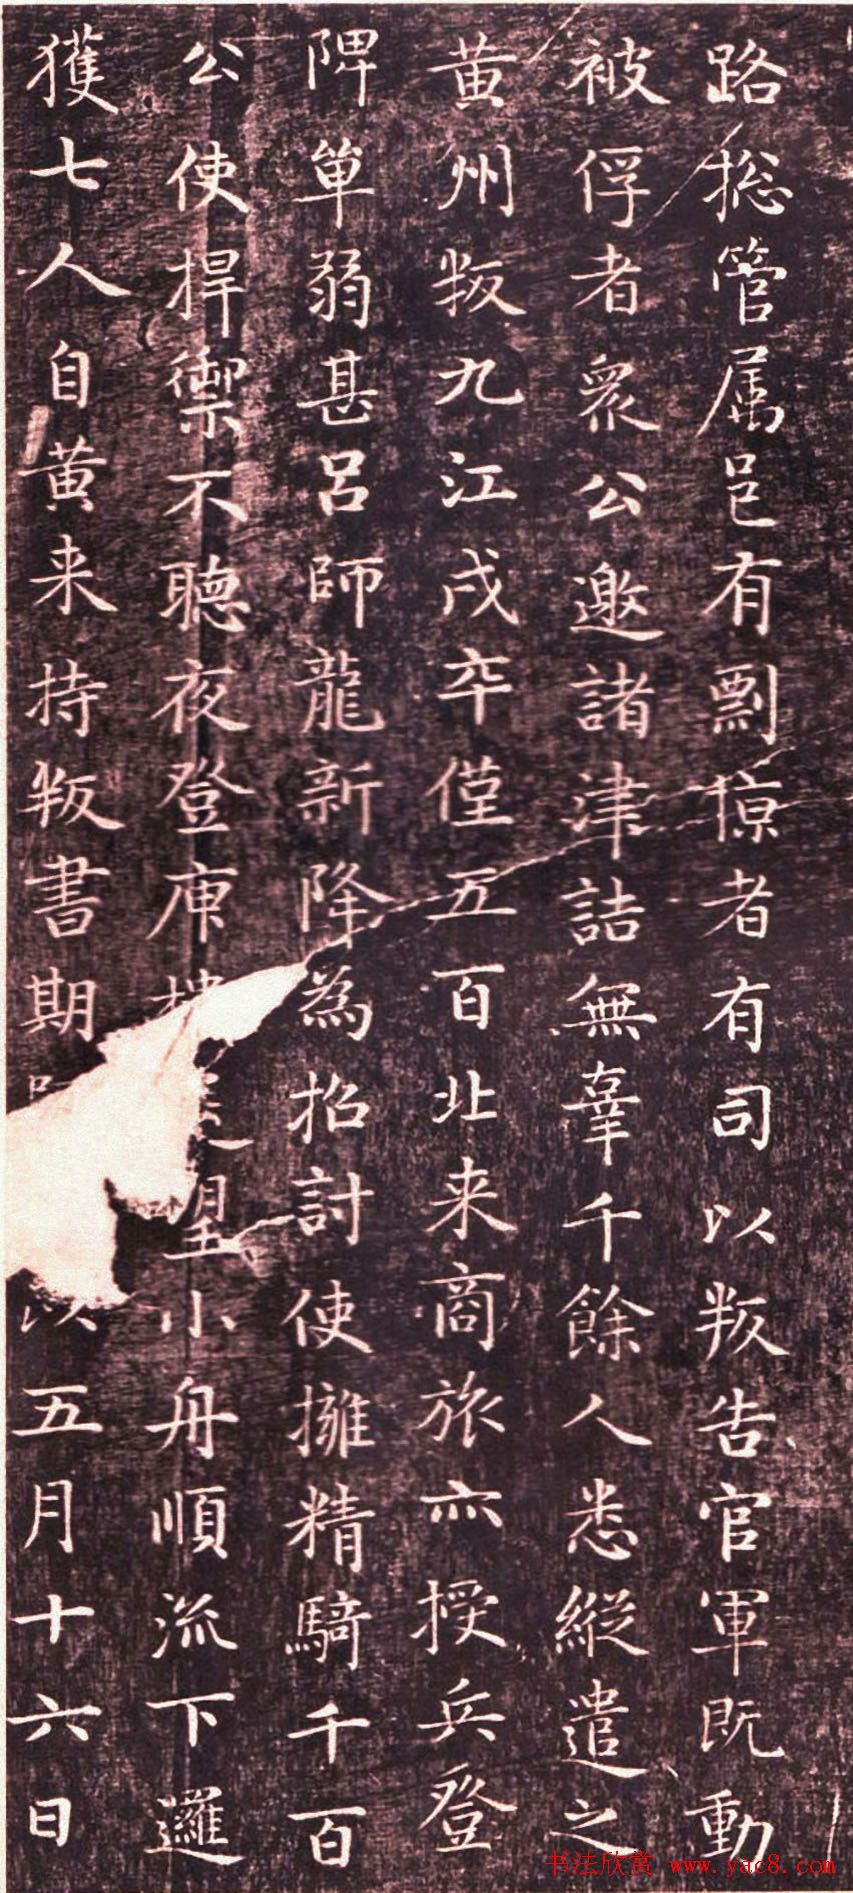 路揔管属邑有剽掠者有司以叛告官軍既動
被俘者衆公邀諸津詰無辜千餘人悉縱遣之
黄州叛九江戍卒僅五百北来商旅亦授兵登
陴単弱甚呂師龍新降為招討使擁精騎千百
公使捍禦不聽夜登庾樓望小舟順流下邏
獲七人自黄来持叛書期以五月十六日
书法欣赏 www.yac8.com